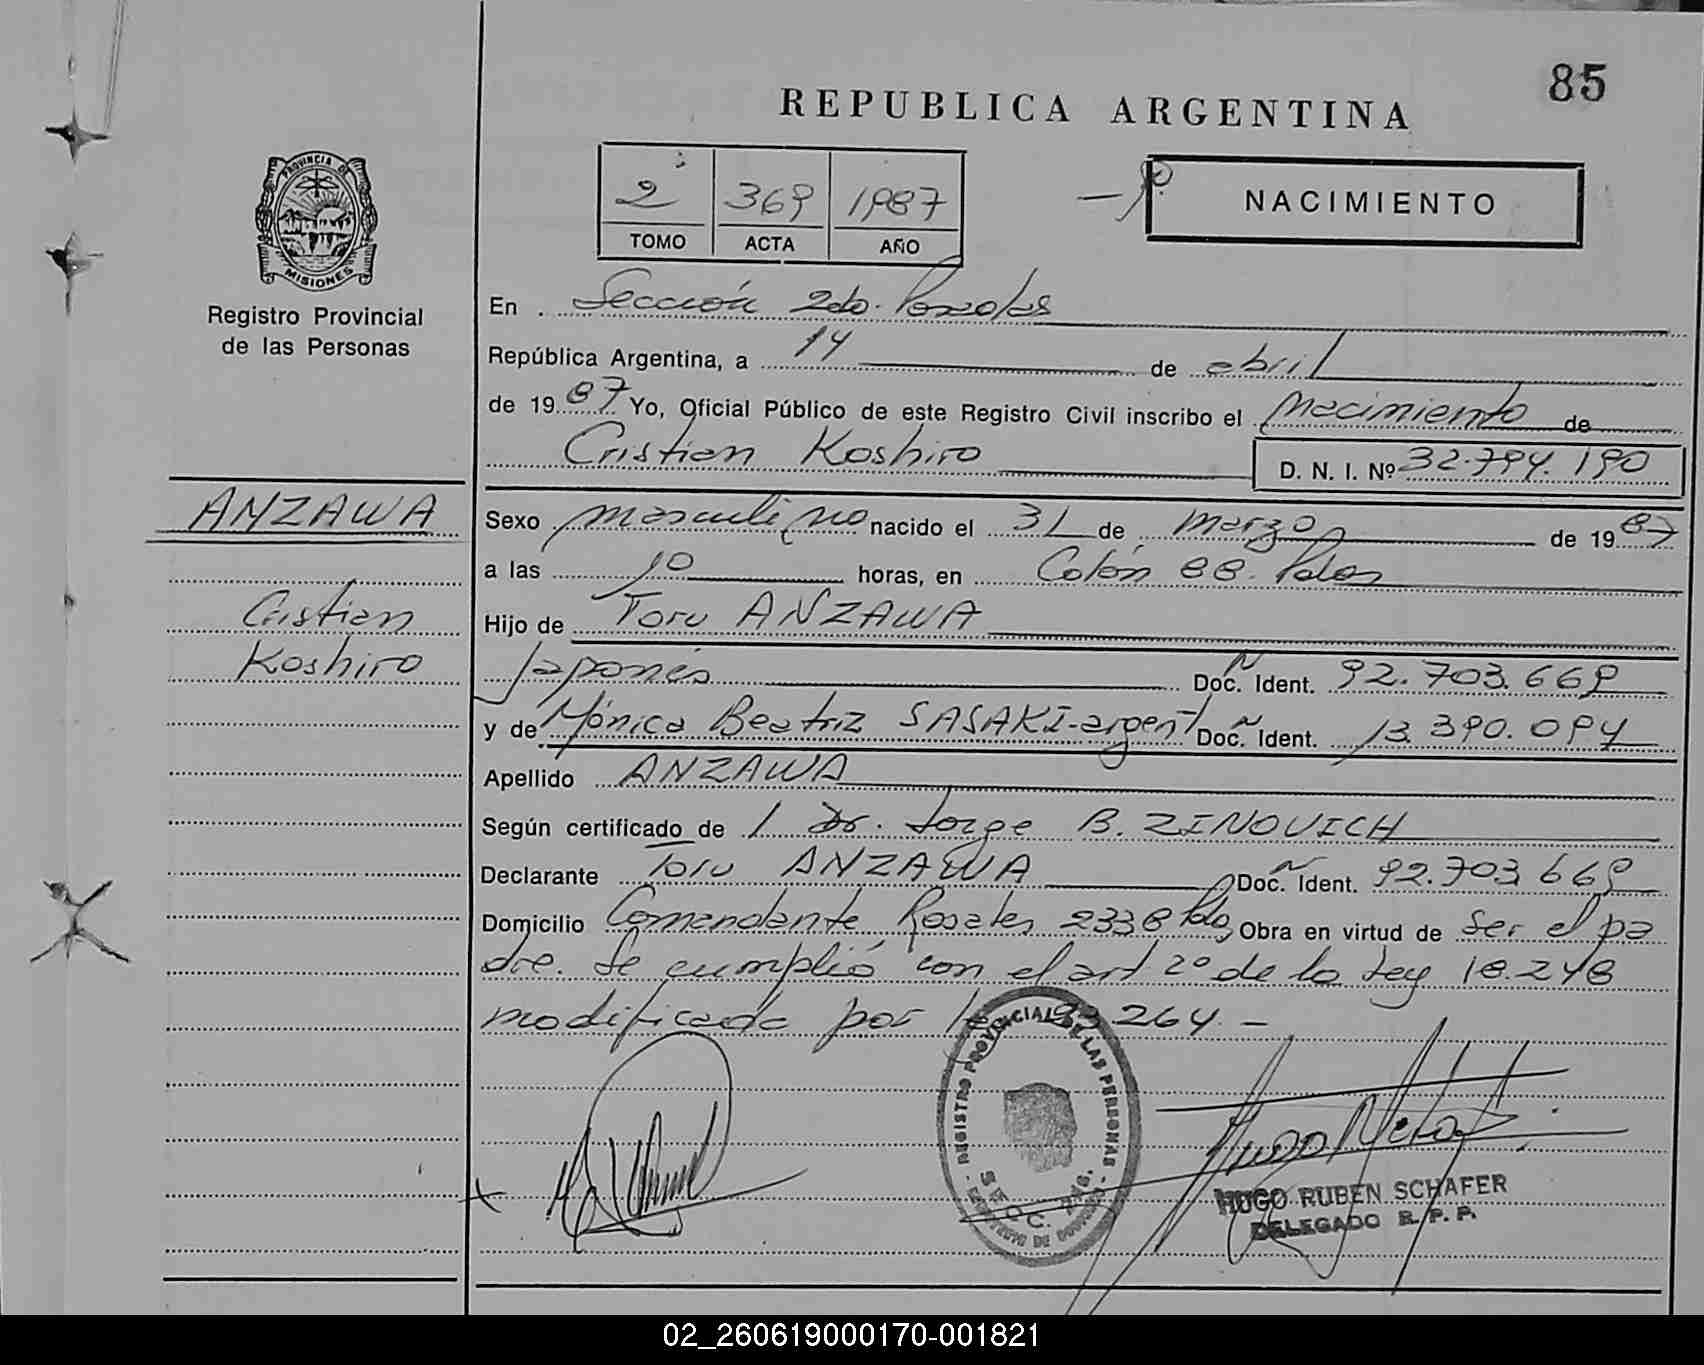 85
REPUBLICA ARGENTINA
2 369 1987
TOMO ACTA AÑO
NACIMIENTO
PROVINCIA DE
MISIONES
Registro Provincial
de las Personas
ANZAWA
Cristian
Koshiro
En Sección 2do. Posadas
República Argentina, a 14 de abril
de 1987 Yo, Oficial Público de este Registro Civil inscribo el Nacimiento de
Cristian Koshiro D. N. I. Nº 32.794.190
Sexo masculino nacido el 31 de marzo de 1987
a las 10 horas, en Colón 88. Pdas
Hijo de Toru ANZAWA
Japonés Doc. Ident. 92.703.669
y de Mónica Beatriz SASAKI-argent Doc. Ident. 13.390.094
Apellido ANZAWA
Según certificado de / Dr. Jorge B. ZINOVICH
Declarante Toru ANZAWA Doc. Ident. 92.703.669
Domicilio Comandante Rosales 2338 Pdas Obra en virtud de ser el pa
dre. Se cumplió con el art. 2º de la Ley 18.248
modificada por la 23.264.-
REGISTRO PROVINCIAL DE LAS PERSONAS
HUGO RUBEN SCHAFER
DELEGADO R. P. P.
02_260619000170-001821